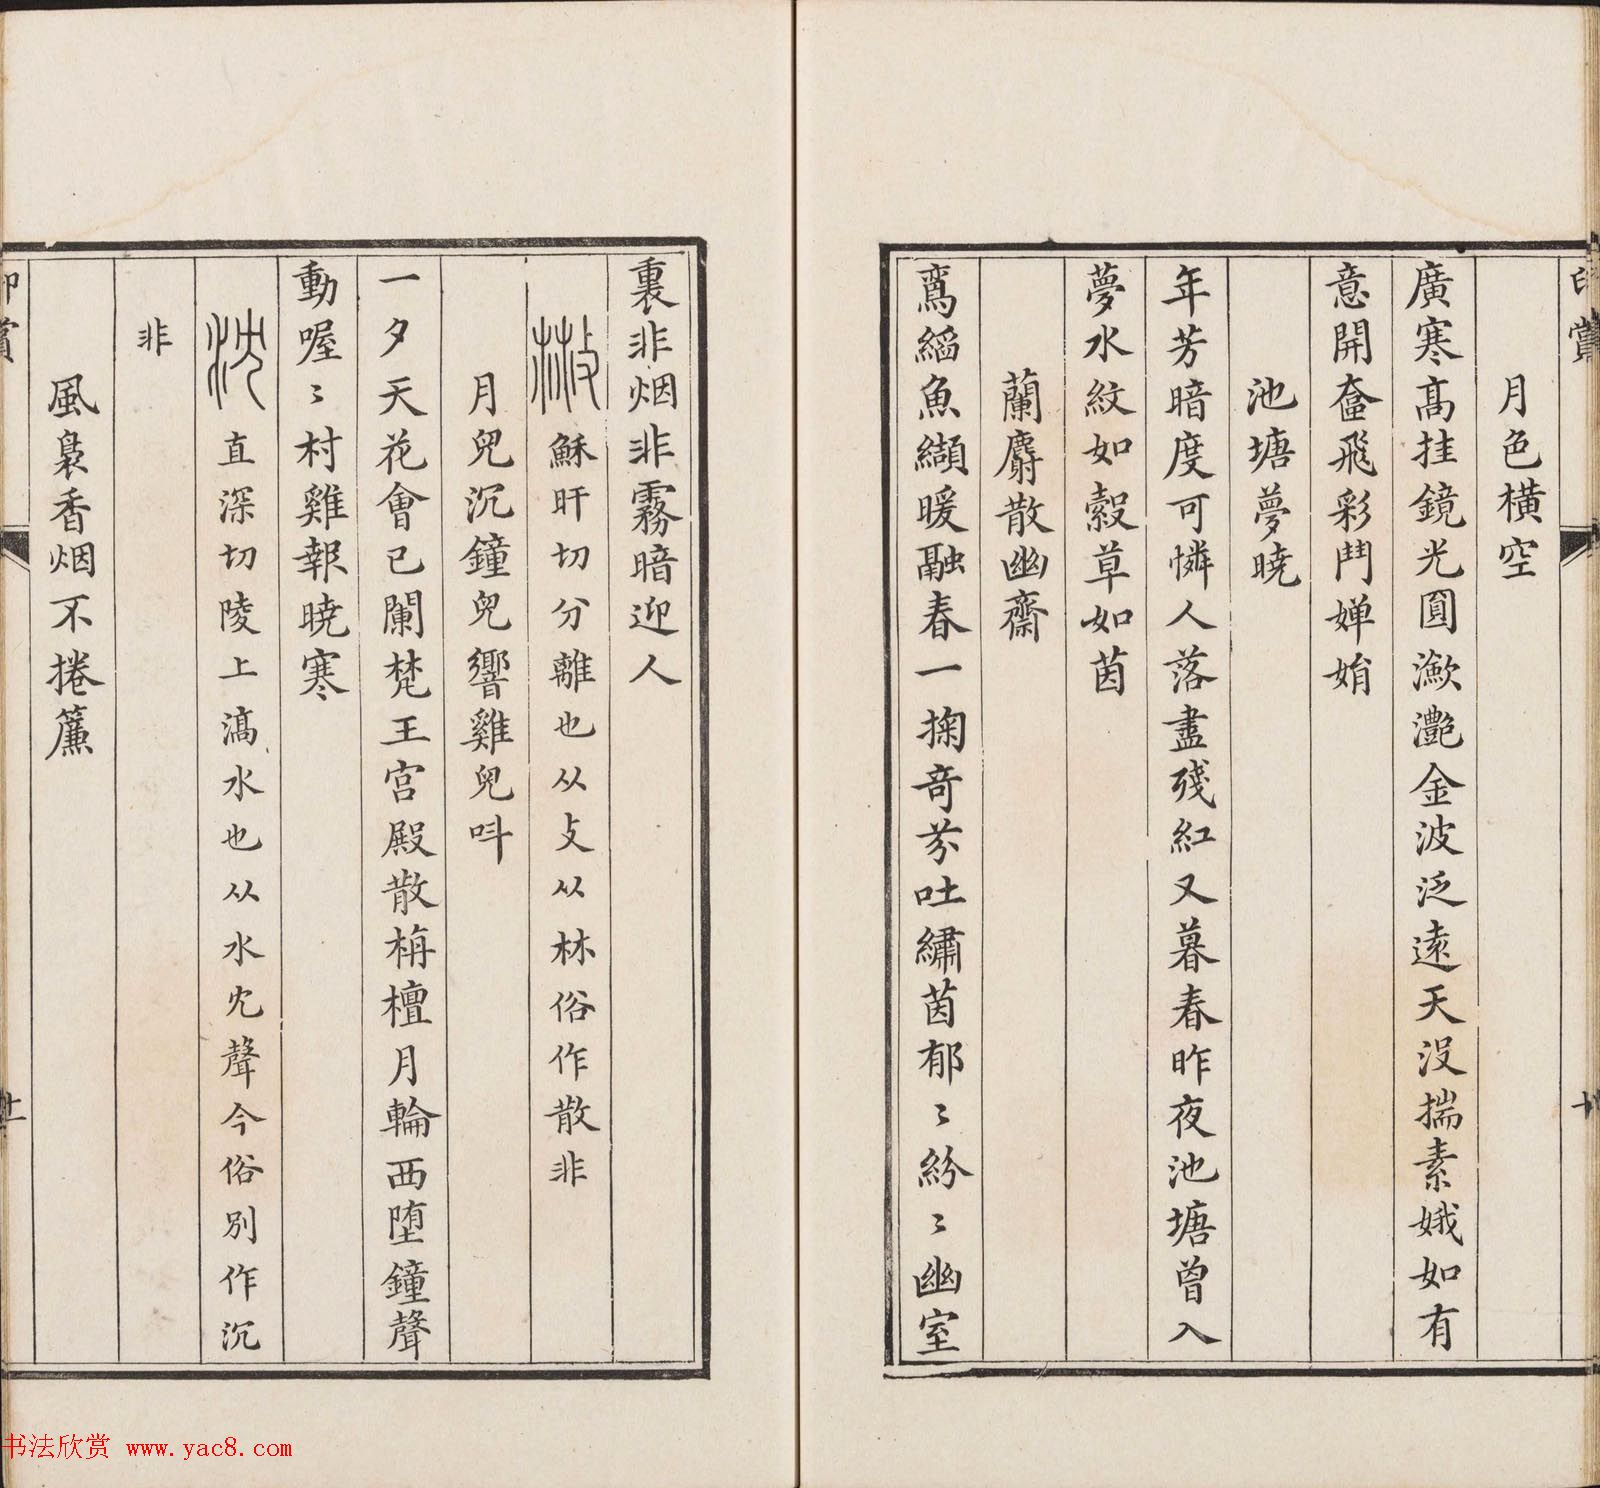 印賞
月色橫空
廣寒高挂鏡光圓瀲灔金波泛遠天沒揣素娥如有
意開奩飛彩鬥嬋娟
池塘夢曉
年芳暗度可憐人落盡殘紅又暮春昨夜池塘曾入
夢水紋如縠草如茵
蘭麝散幽齋
鳶縚魚纈暖融春一掬奇芬吐繡茵郁〻紛〻幽室
十
裏非烟非霧暗迎人
𢿱穌旰切分離也从攴从林俗作散非
月兒沉鐘兒響雞兒呌
一夕天花會已闌梵王宮殿散栴檀月輪西墮鐘聲
動喔〻村雞報曉寒
沈直深切陵上滈水也从水冘聲今俗別作沉
非
風裊香烟不捲簾
印賞
十一
书法欣赏 www.yac8.com